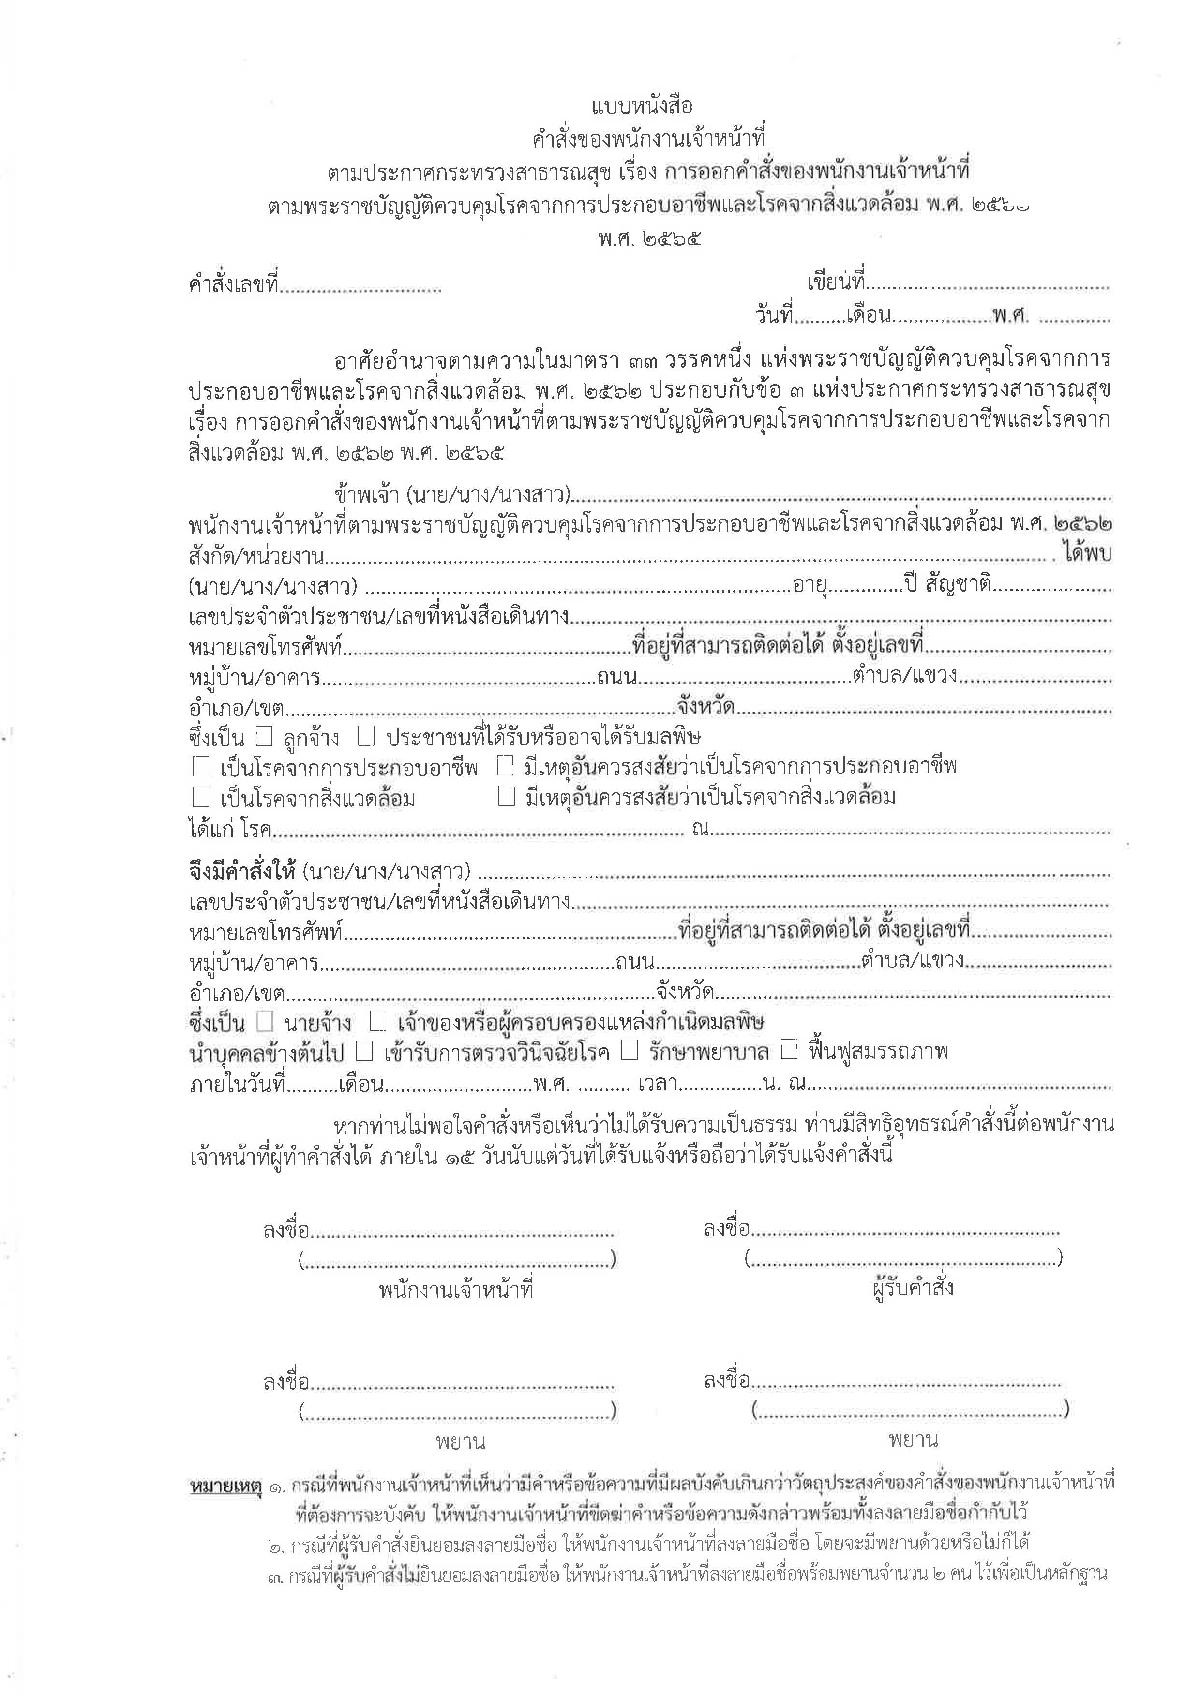 แบบหนังสือ
คำสั่งของพนักงานเจ้าหน้าที่
ตามประกาศกระทรวงสาธารณสุข เรื่อง การออกคำสั่งของพนักงานเจ้าหน้าที่
ตามพระราชบัญญัติควบคุมโรคจากการประกอบอาชีพและโรคจากสิ่งแวดล้อม พ.ศ. ๒๕๖๒
พ.ศ. ๒๕๖๕
คำสั่งเลขที่.............................. เขียนที่..............................................
วันที่.........เดือน...................พ.ศ. .............
อาศัยอำนาจตามความในมาตรา ๓๓ วรรคหนึ่ง แห่งพระราชบัญญัติควบคุมโรคจากการ
ประกอบอาชีพและโรคจากสิ่งแวดล้อม พ.ศ. ๒๕๖๒ ประกอบกับข้อ ๓ แห่งประกาศกระทรวงสาธารณสุข
เรื่อง การออกคำสั่งของพนักงานเจ้าหน้าที่ตามพระราชบัญญัติควบคุมโรคจากการประกอบอาชีพและโรคจาก
สิ่งแวดล้อม พ.ศ. ๒๕๖๒ พ.ศ. ๒๕๖๕
ข้าพเจ้า (นาย/นาง/นางสาว)....................................................................................................
พนักงานเจ้าหน้าที่ตามพระราชบัญญัติควบคุมโรคจากการประกอบอาชีพและโรคจากสิ่งแวดล้อม พ.ศ. ๒๕๖๒
สังกัด/หน่วยงาน.................................................................................................................... ได้พบ
(นาย/นาง/นางสาว) ..............................................................................อายุ.............ปี สัญชาติ.....................
เลขประจำตัวประชาชน/เลขที่หนังสือเดินทาง....................................................................................................
หมายเลขโทรศัพท์.....................................................ที่อยู่ที่สามารถติดต่อได้ ตั้งอยู่เลขที่..................................
หมู่บ้าน/อาคาร..................................................ถนน.......................................ตำบล/แขวง............................
อำเภอ/เขต.......................................................................จังหวัด.....................................................................
ซึ่งเป็น ☐ ลูกจ้าง ☐ ประชาชนที่ได้รับหรืออาจได้รับมลพิษ
☐ เป็นโรคจากการประกอบอาชีพ ☐ มีเหตุอันควรสงสัยว่าเป็นโรคจากการประกอบอาชีพ
☐ เป็นโรคจากสิ่งแวดล้อม ☐ มีเหตุอันควรสงสัยว่าเป็นโรคจากสิ่งแวดล้อม
ได้แก่ โรค........................................................................... ณ.........................................................................
จึงมีคำสั่งให้ (นาย/นาง/นางสาว) ....................................................................................................................
เลขประจำตัวประชาชน/เลขที่หนังสือเดินทาง....................................................................................................
หมายเลขโทรศัพท์.............................................................ที่อยู่ที่สามารถติดต่อได้ ตั้งอยู่เลขที่..........................
หมู่บ้าน/อาคาร......................................................ถนน.....................................ตำบล/แขวง...........................
อำเภอ/เขต...................................................................จังหวัด.........................................................................
ซึ่งเป็น ☐ นายจ้าง ☐ เจ้าของหรือผู้ครอบครองแหล่งกำเนิดมลพิษ
นำบุคคลข้างต้นไป ☐ เข้ารับการตรวจวินิจฉัยโรค ☐ รักษาพยาบาล ☐ ฟื้นฟูสมรรถภาพ
ภายในวันที่.........เดือน...........................พ.ศ. .......... เวลา...............น. ณ........................................................
หากท่านไม่พอใจคำสั่งหรือเห็นว่าไม่ได้รับความเป็นธรรม ท่านมีสิทธิอุทธรณ์คำสั่งนี้ต่อพนักงาน
เจ้าหน้าที่ผู้ทำคำสั่งได้ ภายใน ๑๕ วันนับแต่วันที่ได้รับแจ้งหรือถือว่าได้รับแจ้งคำสั่งนี้
ลงชื่อ........................................................ ลงชื่อ........................................................
(........................................................) (........................................................)
พนักงานเจ้าหน้าที่ ผู้รับคำสั่ง
ลงชื่อ........................................................ ลงชื่อ........................................................
(........................................................) (........................................................)
พยาน พยาน
หมายเหตุ ๑. กรณีที่พนักงานเจ้าหน้าที่เห็นว่ามีคำหรือข้อความที่มีผลบังคับเกินกว่าวัตถุประสงค์ของคำสั่งของพนักงานเจ้าหน้าที่
ที่ต้องการจะบังคับ ให้พนักงานเจ้าหน้าที่ขีดฆ่าคำหรือข้อความดังกล่าวพร้อมทั้งลงลายมือชื่อกำกับไว้
๒. กรณีที่ผู้รับคำสั่งยินยอมลงลายมือชื่อ ให้พนักงานเจ้าหน้าที่ลงลายมือชื่อ โดยจะมีพยานด้วยหรือไม่ก็ได้
๓. กรณีที่ผู้รับคำสั่งไม่ยินยอมลงลายมือชื่อ ให้พนักงานเจ้าหน้าที่ลงลายมือชื่อพร้อมพยานจำนวน ๒ คน ไว้เพื่อเป็นหลักฐาน